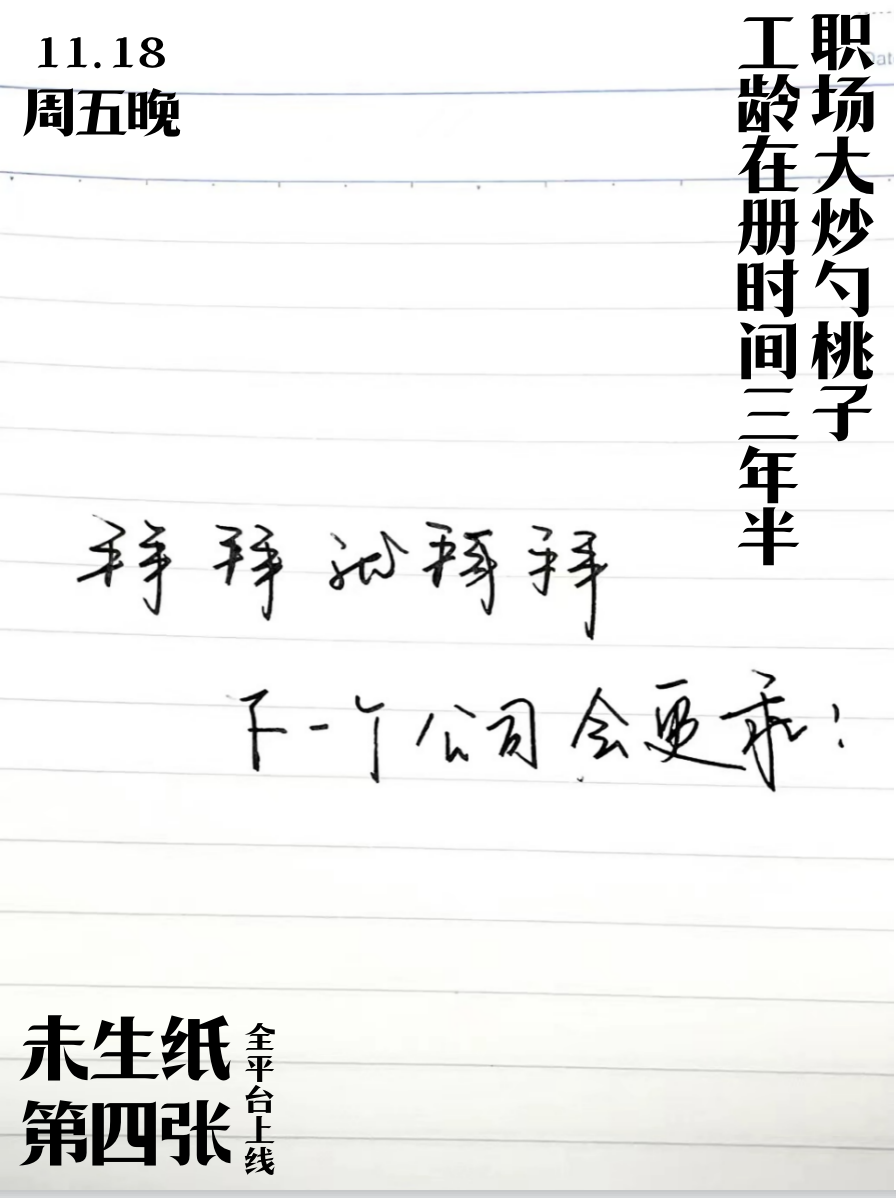 11.18
周五晚
职场大炒勺桃子
工龄在册时间三年半
拜拜就拜拜
下一个公司会更乖!
未生纸
第四张
全平台上线